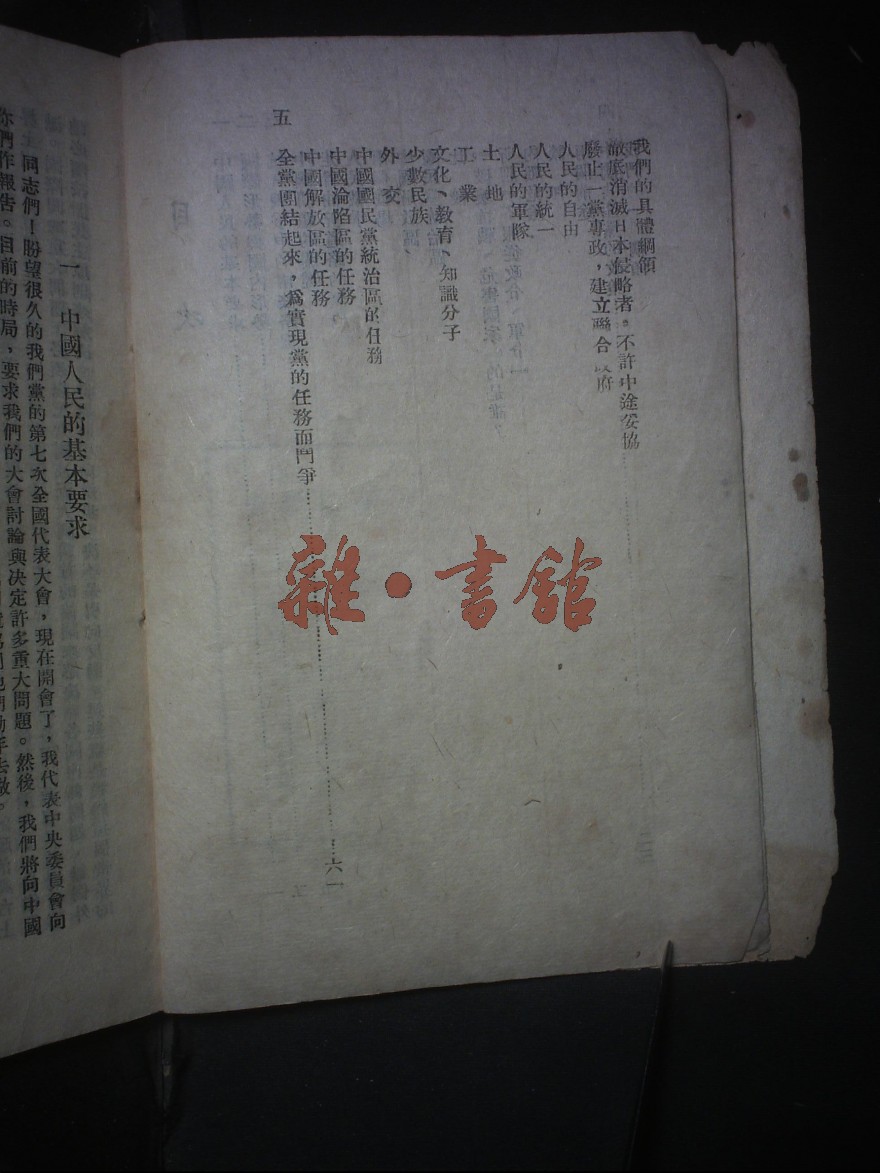 我們的具體綱領
徹底消滅日本侵略者,不許中途妥協
廢止一黨專政,建立聯合政府
人民的自由
人民的統一
人民的軍隊
土地
工業
文化、教育、知識分子
少數民族
外交
中國國民黨統治區的任務
中國淪陷區的任務
中國解放區的任務
五 全黨團結起來,爲實現黨的任務而鬥爭……六一
雜·書館
一 中國人民的基本要求
同志們!盼望很久的我們黨的第七次全國代表大會,現在開會了,我代表中央委員會向
你們作報告。目前的時局,要求我們的大會討論與決定許多重大問題。然後,我們將向中國